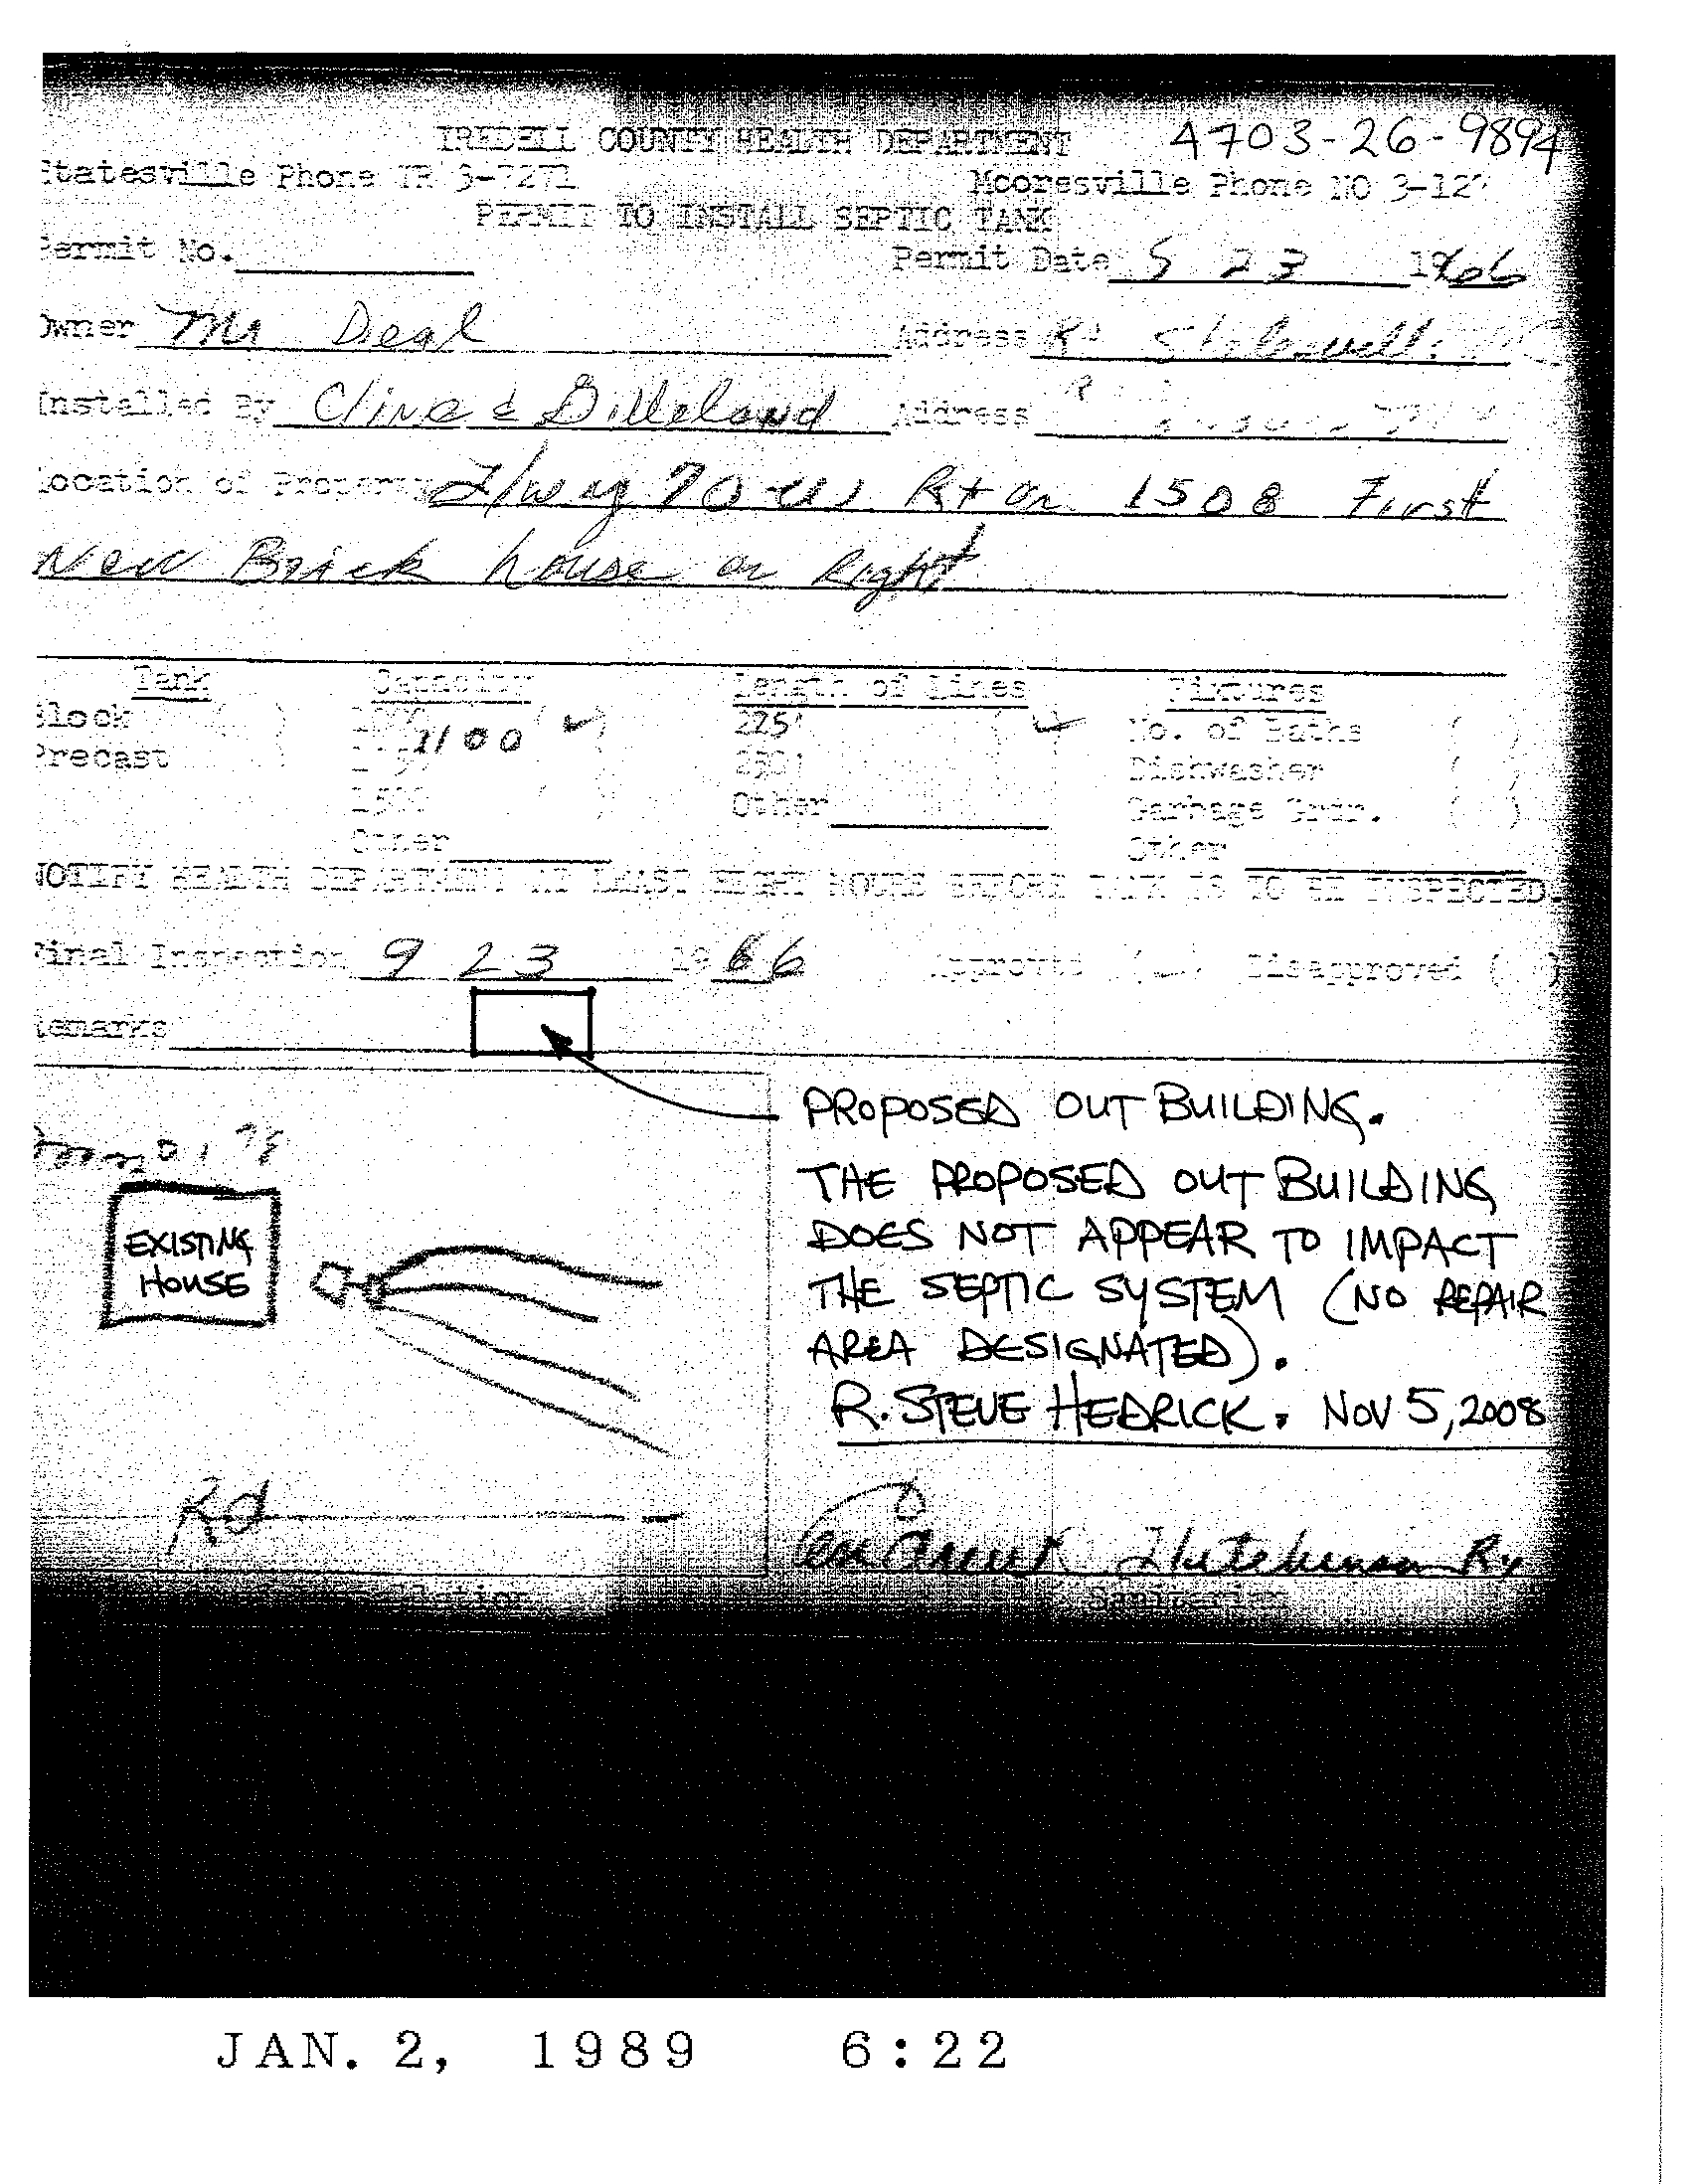 IREDELL COUNTY HEALTH DEPARTMENT 4703-26-9894
Statesville Phone TR 3-7271 Mooresville Phone NO 3-12
PERMIT TO INSTALL SEPTIC TANK
Permit No. Permit Date 5 23 1966
Owner Mr Deal Address Rd
Installed By Cline & Dilleland Address
Location of Property Hway 70 W Rt on 1508 First
New Brick house on Right
Tank Capacity Length of Lines Fixtures
Block ( ) 1100 (✓) 225' (✓) No. of Baths ( )
Precast ( ) 250' Dishwasher ( )
1500 ( ) Other Garbage Grdr. ( )
Other Other
NOTIFY HEALTH DEPARTMENT AT LEAST EIGHT HOURS BEFORE TANK IS TO BE INSPECTED.
Final Inspection 9 23 1966 Approved (✓) Disapproved ( )
Remarks
PROPOSED OUT BUILDING.
THE PROPOSED OUT BUILDING
DOES NOT APPEAR TO IMPACT
THE SEPTIC SYSTEM (NO REPAIR
AREA DESIGNATED).
R. STEVE HEDRICK. NOV 5, 2008
EXISTING
HOUSE
Rd
Hutchinson
Sanitarian
JAN. 2, 1989 6:22